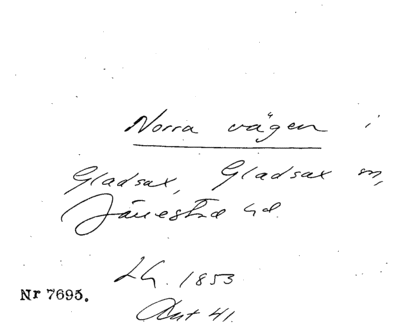 Norra vägen i
Gladsax, Gladsax sn,
Järrestad hd.
LG. 1853
Nr 7695.
Aut 41.